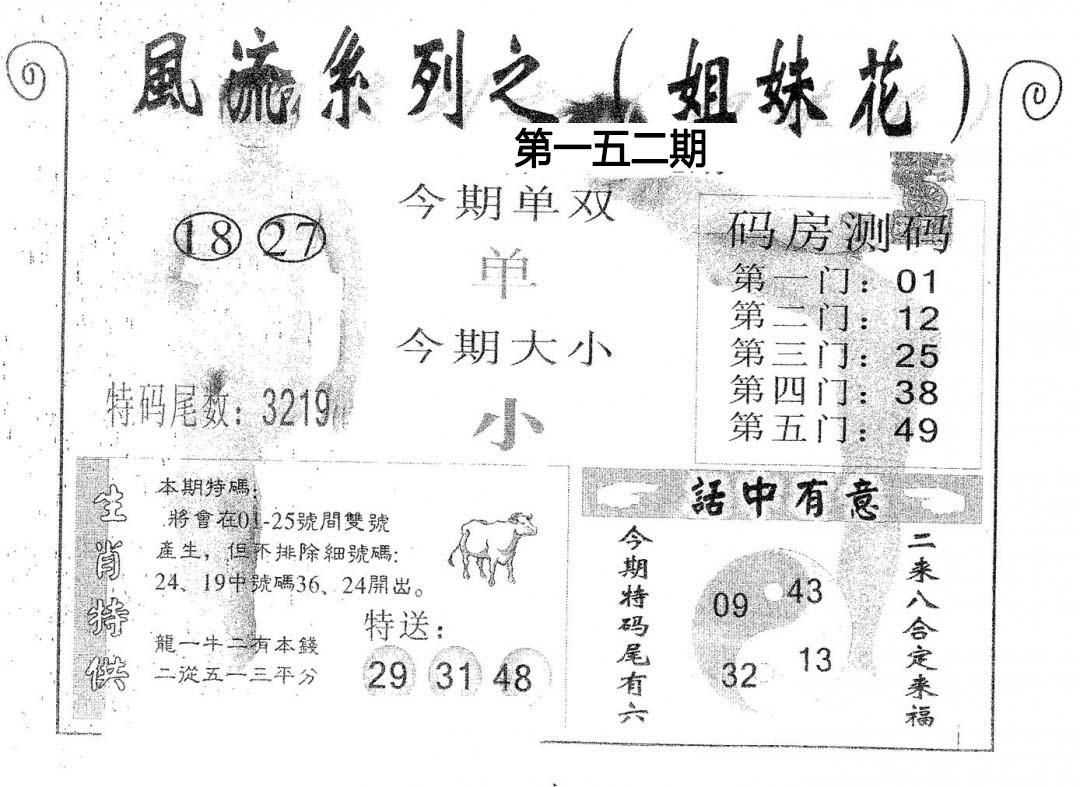 風流系列之（姐妹花）
第一五二期
18 27
今期单双
单
今期大小
小
特码尾数：3219
码房测码
第一门：01
第二门：12
第三门：25
第四门：38
第五门：49
生肖特供
本期特碼：
將會在01-25號間雙號
產生，但不排除細號碼:
24、19中號碼36、24開出。
龍一牛二有本錢
二從五一三平分
特送：
29 31 48
話中有意
今期特码尾有六
09 43
32 13
二来八合定来福